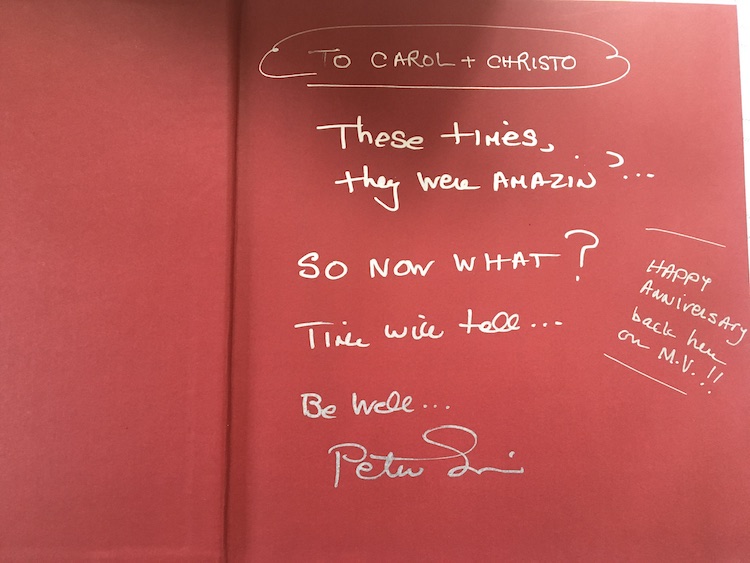 TO CAROL + CHRISTO
These times,
they were AMAZIN'...
SO NOW WHAT?
Time will tell...
Be well...
Peter
HAPPY
ANNIVERSARY
back here
on M.V.!!